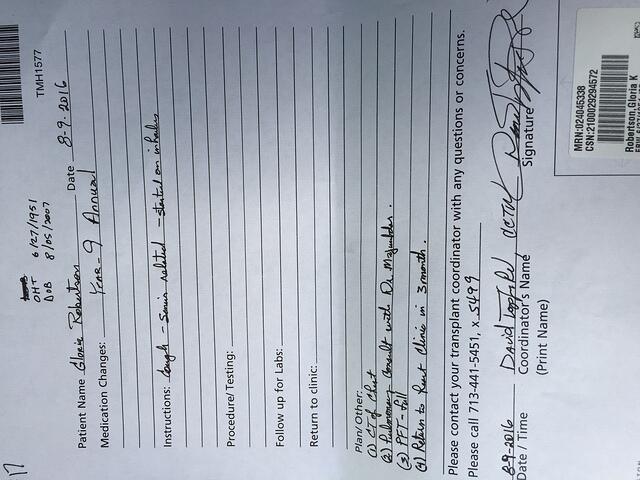 17
TMH1577
OHT 6/27/1951
DOB 8/05/2007
Patient Name Gloria Robertson Date 8-9-2016
Medication Changes: Year-9 Annual
Instructions: Cough - related - started on inhaler
Procedure/Testing:
Follow up for Labs:
Return to clinic:
Plan/Other:
(1) CT of Chest
(2) Pulmonary Consult with Dr
(3) PFT-full
(4) Return to Heart Clinic in 3 month.
Please contact your transplant coordinator with any questions or concerns.
Please call 713-441-5451, x 5499
8-9-2016 David
Date / Time Coordinator's Name Signature
(Print Name)
MRN:024045338
CSN:2100029294572
Robertson,Gloria K